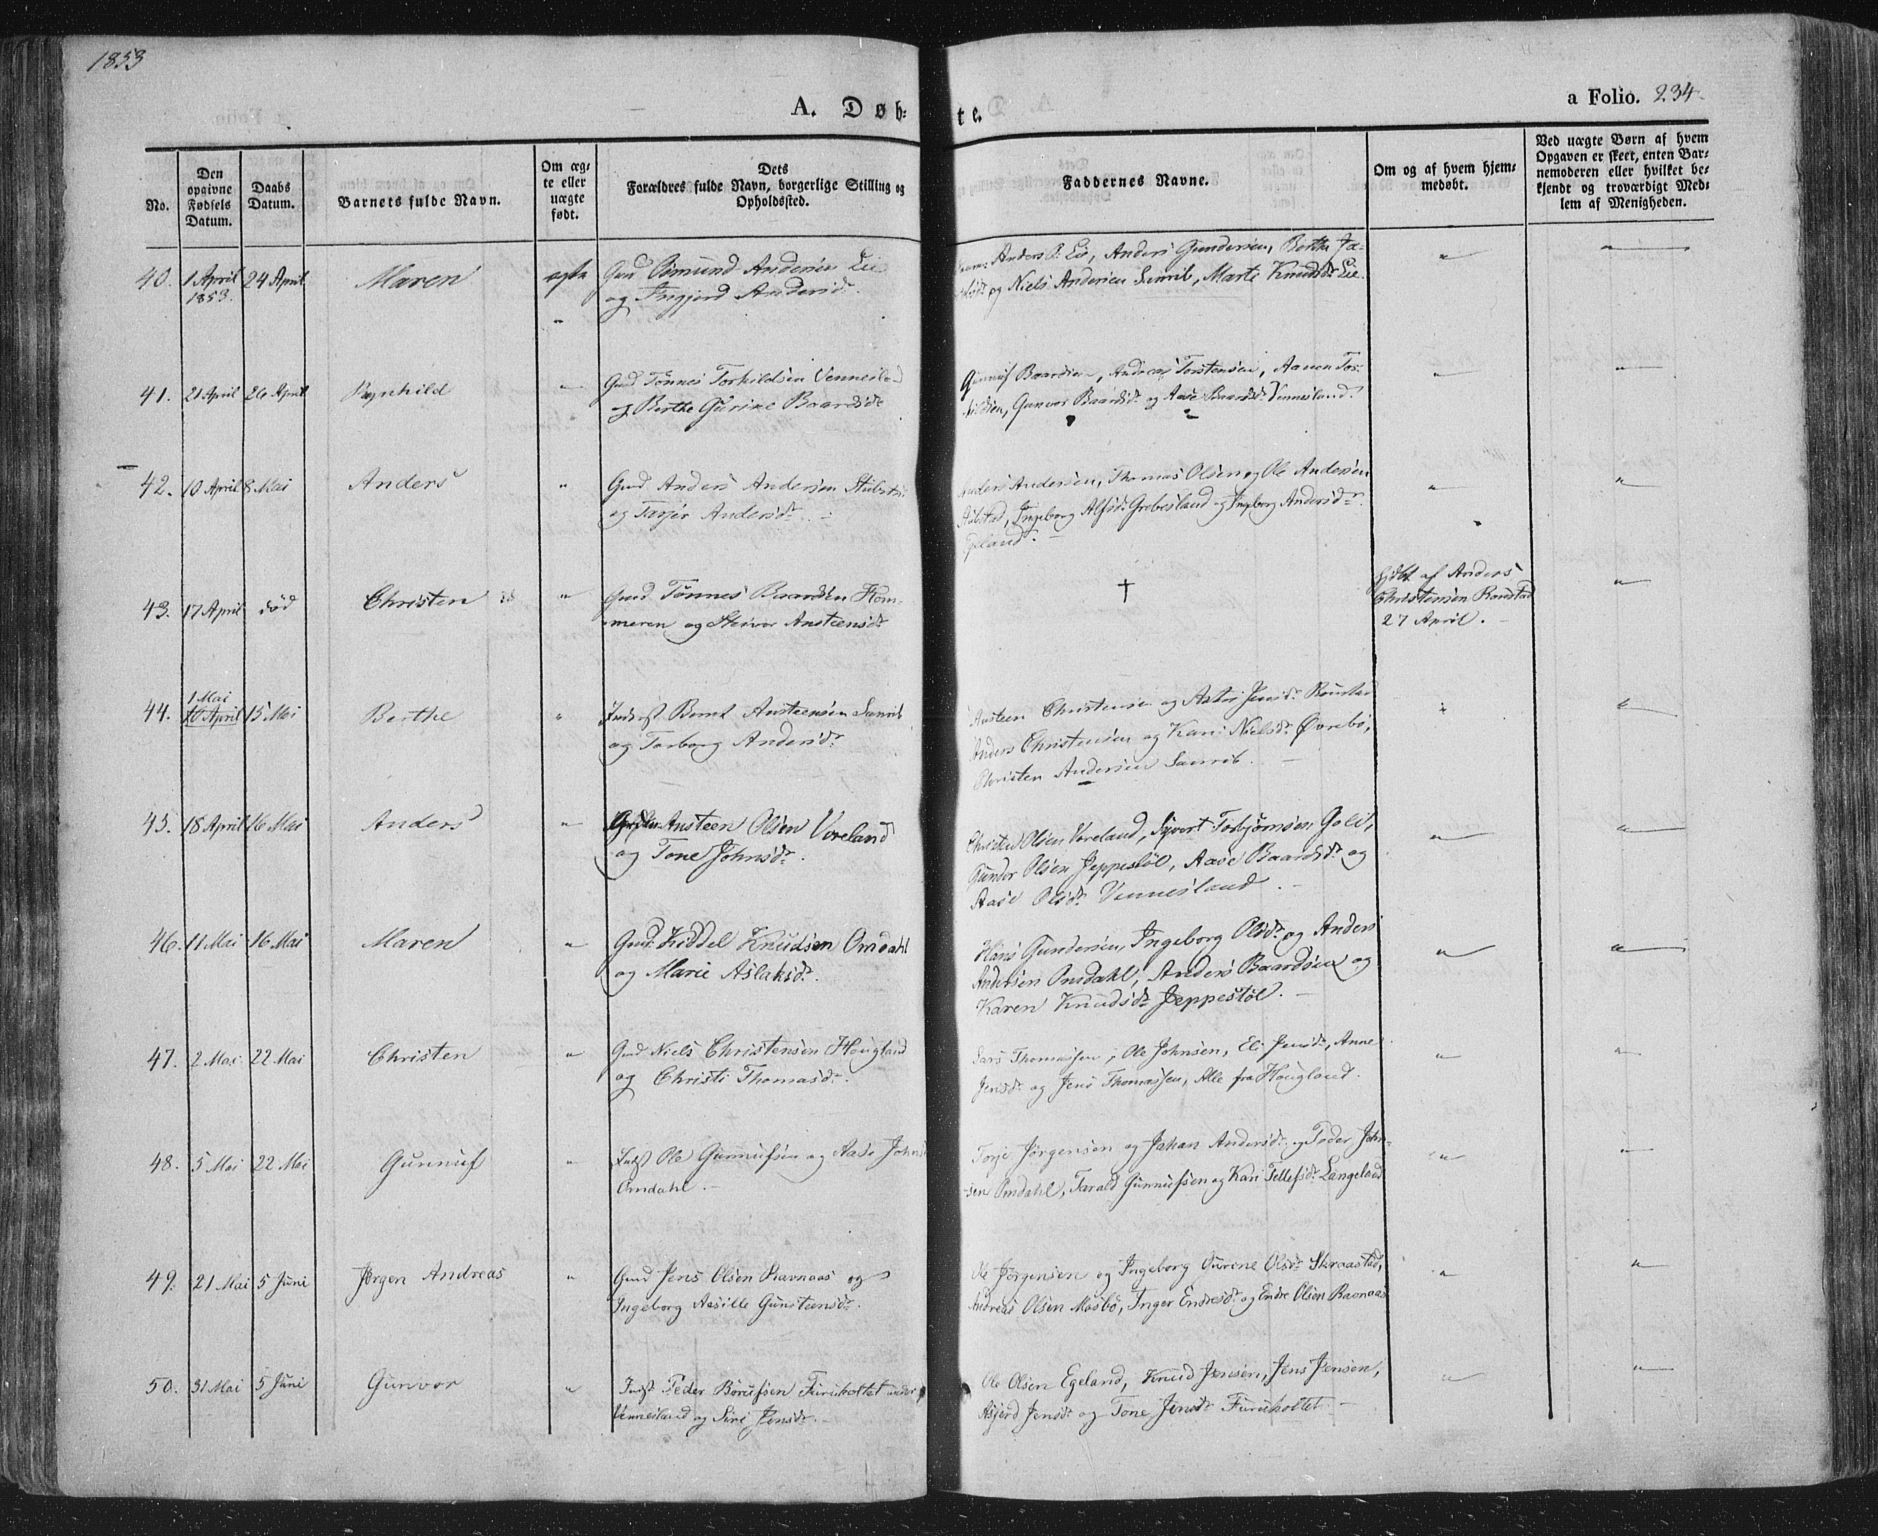 1853
A. Døb-
te.
a Folio. 234.
No.
Den
opgivne
Fødsels
Datum.
Daabs
Datum.
Barnets fulde Navn.
Om æg-
te eller
uægte
født.
Dets
Forældres fulde Navn, borgerlige Stilling og
Opholdssted.
Faddernes Navne.
Om og af hvem hjem-
medøbt.
Ved uægte Børn af hvem
Opgaven er skeet, enten Bar-
nemoderen eller hvilket be-
kjendt og troværdigt Med-
lem af Menigheden.
40. 1 April 24 April Maren ægte Gmd Osmund Andersen Lie
1853.
og Ingjerd Andersdr.
Anders Lie, Anders Gundersen, Berthe Ja-
og Niels Andersen Samrib, Marte Knudsdr Lie
41. 21 April 26 April Rejnhild " Gmd Tönnes Torkildsen Vennesland
og Berthe Gurine Baardsdr
Gunnuf Baardsen, Andreas Torstensen, Aanen Tor-
kildsen, Gunvor Baardsdr og Aase Baardsdr Vennesland.
42. 10 April 8 Mai Anders " Gmd Anders Andersen Stubstad
og Tarjer Andersdr.
Anders Andersen, Thomas Olsen og Ole Andersen
Stubstad, Ingeborg Alfsdr Grebesland og Ingeborg Andersdr
Egeland.
43. 17 April död Christen " Gmd Tönnes Baardsen Hom-
meren og Steivor Austeensdr
†
hjdbt af Anders
Christensen Roustad
27 April.
44. 1 Mai
10 April 15 Mai Berthe " Inderst Bernt Austeensen Samrib
og Torborg Andersdr
Austeen Christensen og Asta Jensdr Roustad
Anders Christensen og Kari Nielsdr Øvrebö,
Christen Andersen Samrib.
45. 18 April 16 Mai Anders " Austeen Olsen Voreland
og Tone Johnsdr.
Christen Olsen Voreland, Syvert Torbjörnsen Golit,
Gunder Olsen Jeppestöl, Aase Baardsdr og
Aase Olsdr Vennesland.
46. 11 Mai 16 Mai Maren " Gmd. Kiddel Knudsen Omdahl
og Marie Aslaksdr.
Hans Gundersen, Ingeborg Olsdr og Anders
Andersen Omdahl, Anders Baardsen og
Karen Knudsdr Jeppestöl.
47. 2 Mai 22 Mai Christen " Gmd Niels Christensen Hougland
og Christi Thomasdr.
Lars Thomassen, Ole Johnsen, Eli Jensdr, Anne
Jensdr og Jens Thomassen, Alle fra Hougland.
48. 5 Mai 22 Mai Gunnuf " Indst Ole Gunnufsen og Aase Johnsdr
Omdahl.
Torje Jörgensen og Johan Andersdr og Peder John-
sen Omdahl, Tarald Gunnufsen og Kari Tellefsdr Langeland
49. 21 Mai 5 Juni Jörgen Andreas " Gmd Jens Olsen Ravnaas og
Ingeborg Aasille Gunsteensdr.
Ole Jörgensen og Ingeborg Gurine Olsdr Skraastad,
Andreas Olsen Mosbö, Inger Endresdr og Endre Olsen Ravnaas
50. 31 Mai 5 Juni Gunvor " Indst Peder Börufsen Furuholtet under
Vennesland og Siri Jensdr.
Ole Olsen Egeland, Knud Jensen, Jens Jensen,
Asjerd Jensdr og Tone Jensdr Furuholtet